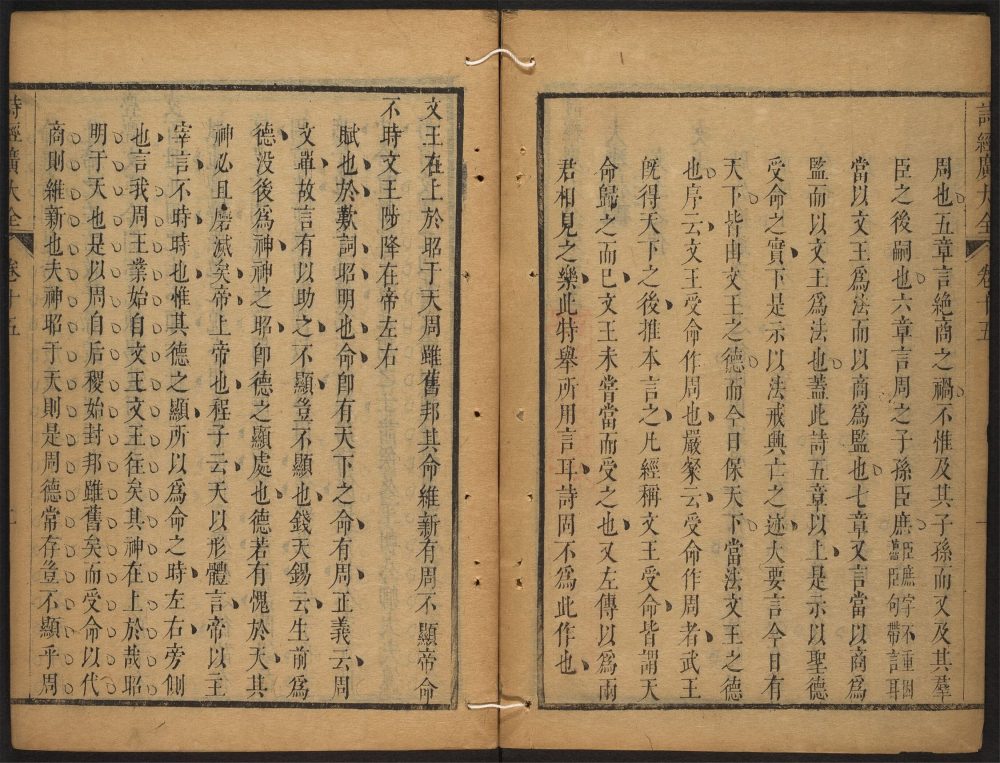 詩經廣大全 卷十五
周也五章言絶商之禍不惟及其子孫而又及其羣
臣之後嗣也六章言周之子孫臣庶臣庶字不重因舊臣句帶言耳
當以文王爲法而以商爲監也七章又言當以商爲
監而以文王爲法也蓋此詩五章以上是示以聖德
受命之實下是示以法戒興亡之迹大要言今日有
天下皆由文王之德而今日保天下當法文王之德
也序云文王受命作周也嚴粲云受命作周者武王
旣得天下之後推本言之凡經稱文王受命皆謂天
命歸之而已文王未嘗當而受之也又左傳以爲兩
君相見之樂此特舉所用言耳詩固不爲此作也
文王在上於昭于天周雖舊邦其命維新有周不顯帝命
不時文王陟降在帝左右
賦也於歎詞昭明也命卽有天下之命有周正義云周
文單故言有以助之不顯豈不顯也錢天錫云生前爲
德没後爲神神之昭卽德之顯處也德若有愧於天其
神必且磨滅矣帝上帝也程子云天以形體言帝以主
宰言不時時也惟其德之顯所以爲命之時左右旁側
也言我周王業始自文王文王往矣其神在上於哉昭
明于天也是以周自后稷始封邦雖舊矣而受命以代
商則維新也夫神昭于天則是周德常存豈不顯乎周
詩經廣大全 卷十五